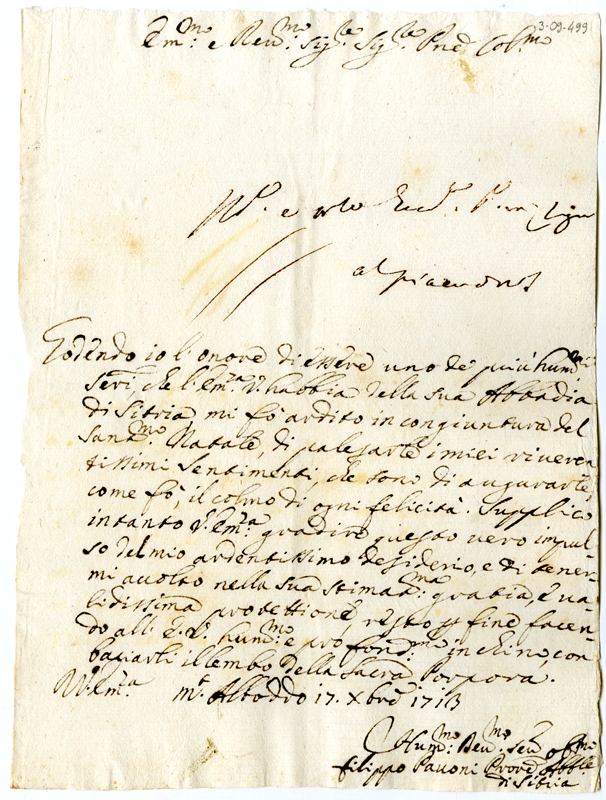 3-09-499
Em.mo e Reu.mo Sig.re Sig.re Pne Col.mo
al piacendo
Godendo io l'onore di essere uno de più hum.mi
seru.i che l'Em.a V. habbia della sua Abbadia
di Sitria mi fò ardito in congiuntura del
Sant.mo Natale, di palesarle i miei riueren
tissimi sentimenti, che sono di augurarle,
come fò, il colmo di ogni felicità. Supplico
intanto V. Em.za gradire questo uero impul-
so del mio ardentissimo desiderio, e di tener-
mi auolto nella sua stimat.ma gratia, e ua-
lidissima protettione, resto p fine facen-
do all'E.V. hum.mo e profond.mo inchino, con
baciarli il lembo della Sacra Porpora.
Di V. Em.za M.e Alboddo 17. Xbre 1713
Hum.mo Deu.mo seru obl.mo
Filippo Pauoni Proued. Abble
di Sitria